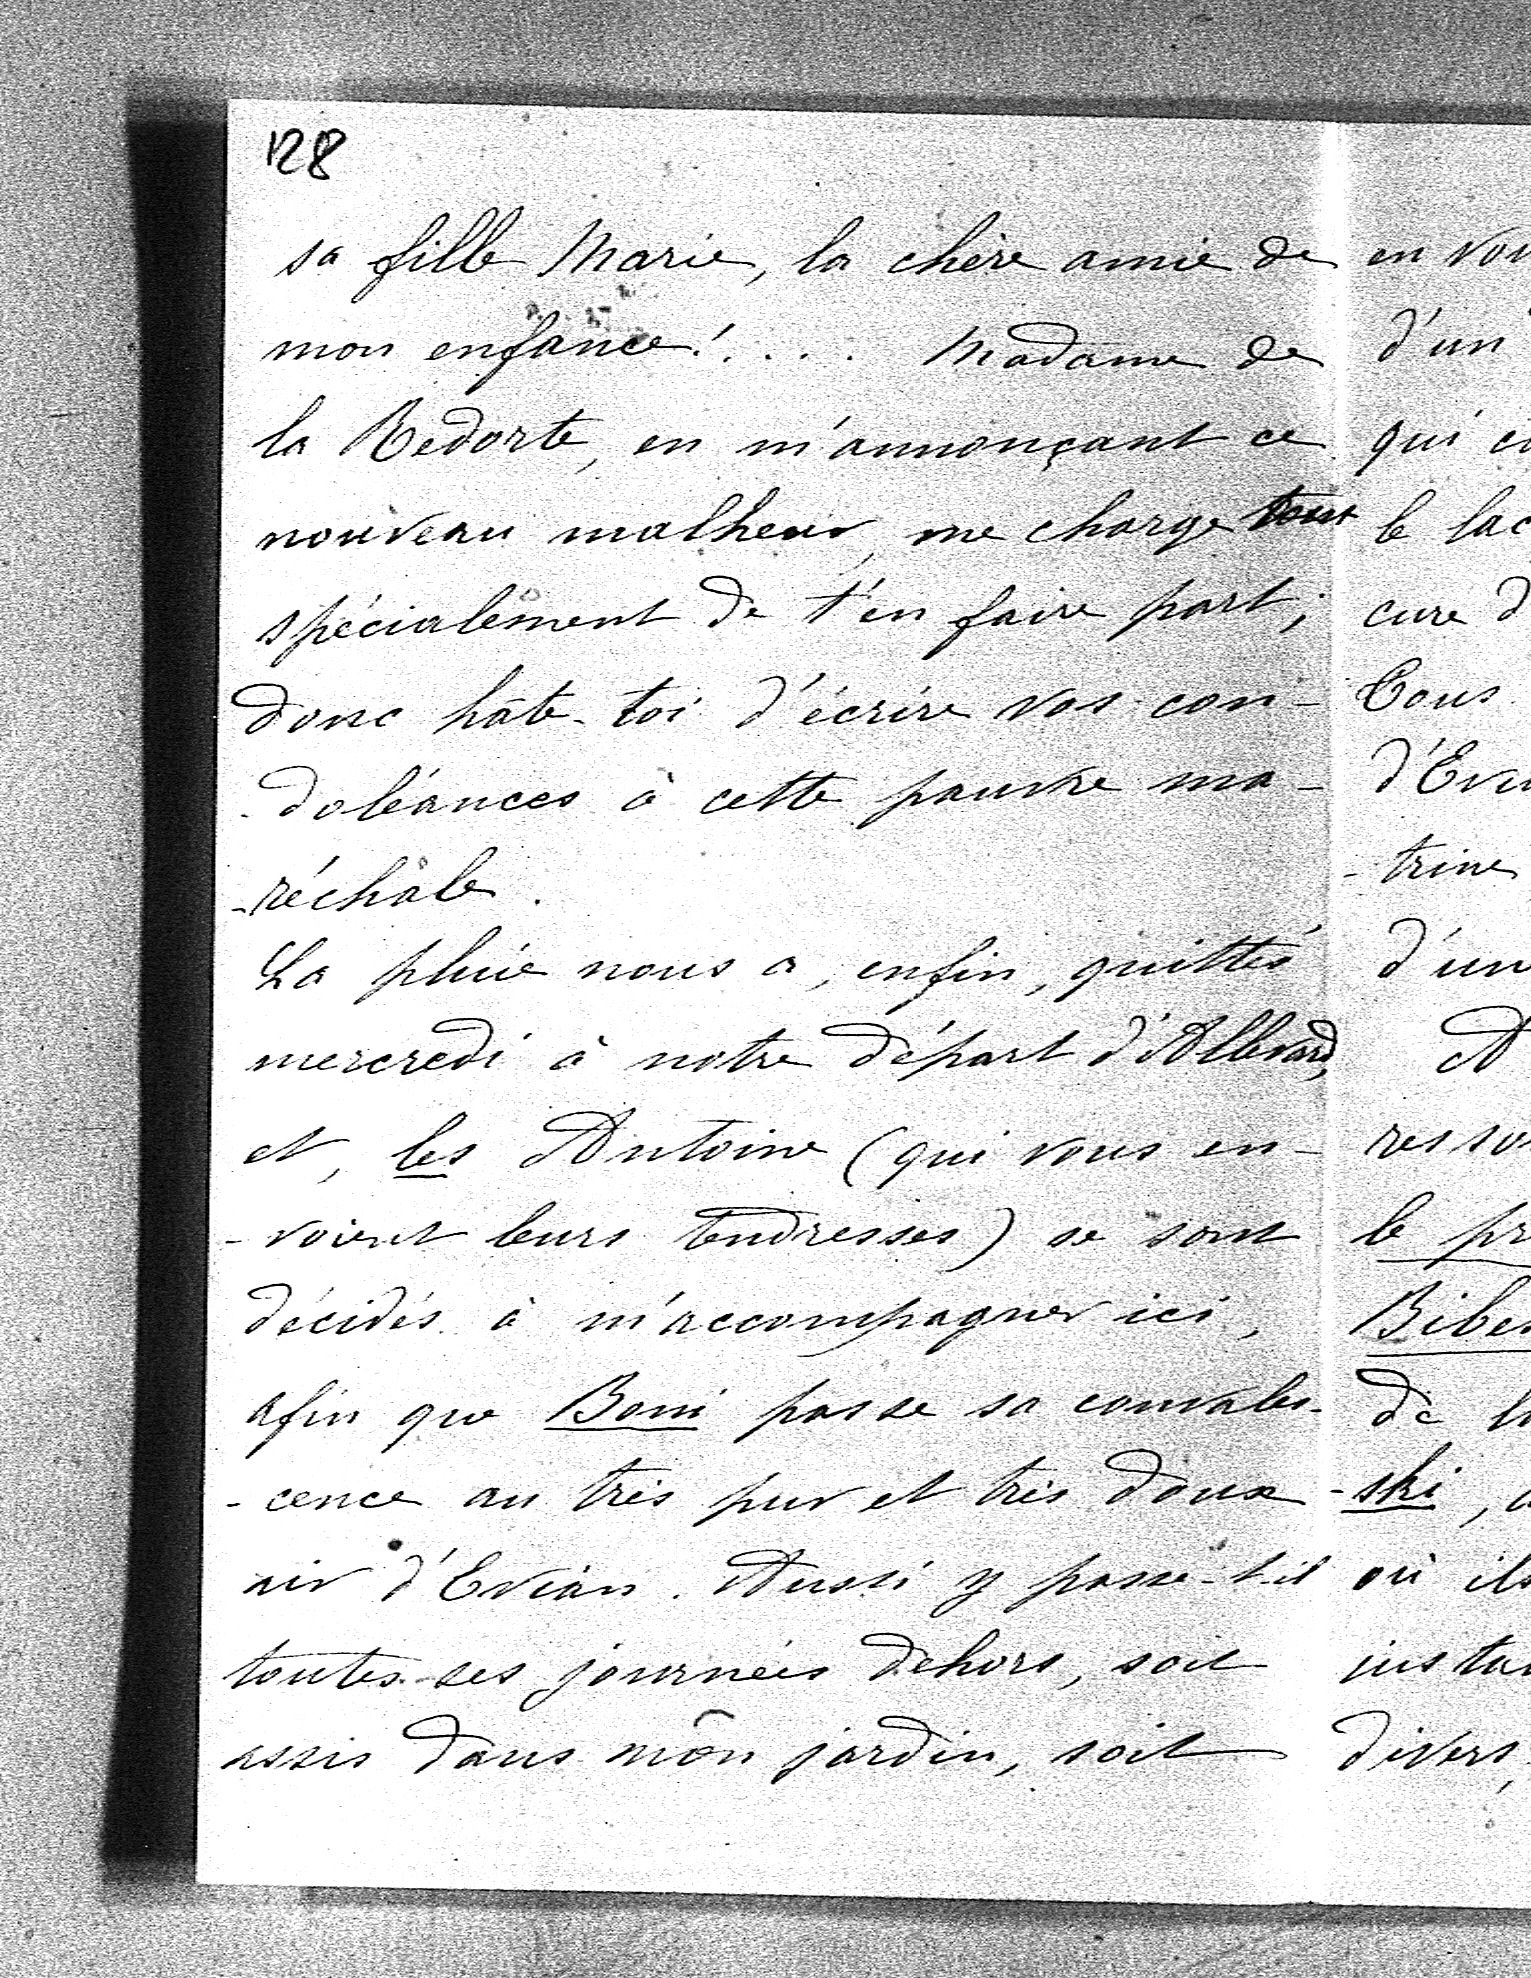 128
sa fille Marie, la chère amie de
mon enfance!.... Madame de
la Redorte, en m'annonçant ce
nouveau malheur, me charge tout
spécialement de t'en faire part;
donc hâte-toi d'écrire vos con-
-doléances à cette pauvre ma-
-réchale.
La pluie nous a, enfin, quittés
mercredi à notre départ d'Allevard,
et, les Antoine (qui vous en-
-voient leurs tendresses) se sont
décidés à m'accompagner ici,
afin que Boni passe sa convales-
-cence au très pur et très doux
air d'Evian. Aussi y passe-t-il
toutes ses journées dehors, soit
assis dans mon jardin, soit
en vou
d'un
qui en
le lac
cure d
Tous
d'Evi
-trine
d'un
A
resso
le pr
Bibes
de la
-ski, a
où ils
instan
divers,